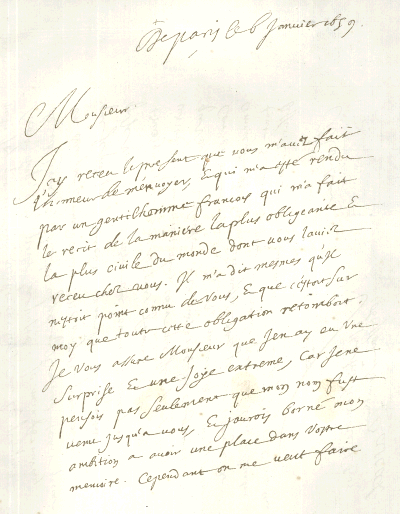 De paris ce 6 Janvier 1659.
Monsieur.
J'ay receu le present que vous m'aviez fait
l'honneur de m'envoyer, & qui m'a esté rendu
par un gentilhomme francois qui m'a fait
le recit de la maniere la plus obligeante &
la plus civile du monde dont vous l'aviez
receu chez vous. Il m'a dit mesmes qu'il
n'estoit point connu de vous, & que c'estoit sur
moy que toute cette obligation retomboit.
Je vous assure Monsieur que J'en ay eu une
surprise & une Joÿe extreme, Car Je ne
pensois pas seulement que mon nom fust
venu jusqu'a vous, & j'aurois borné mon
ambition a avoir une place dans vostre
memoire. Cependant on me veut faire